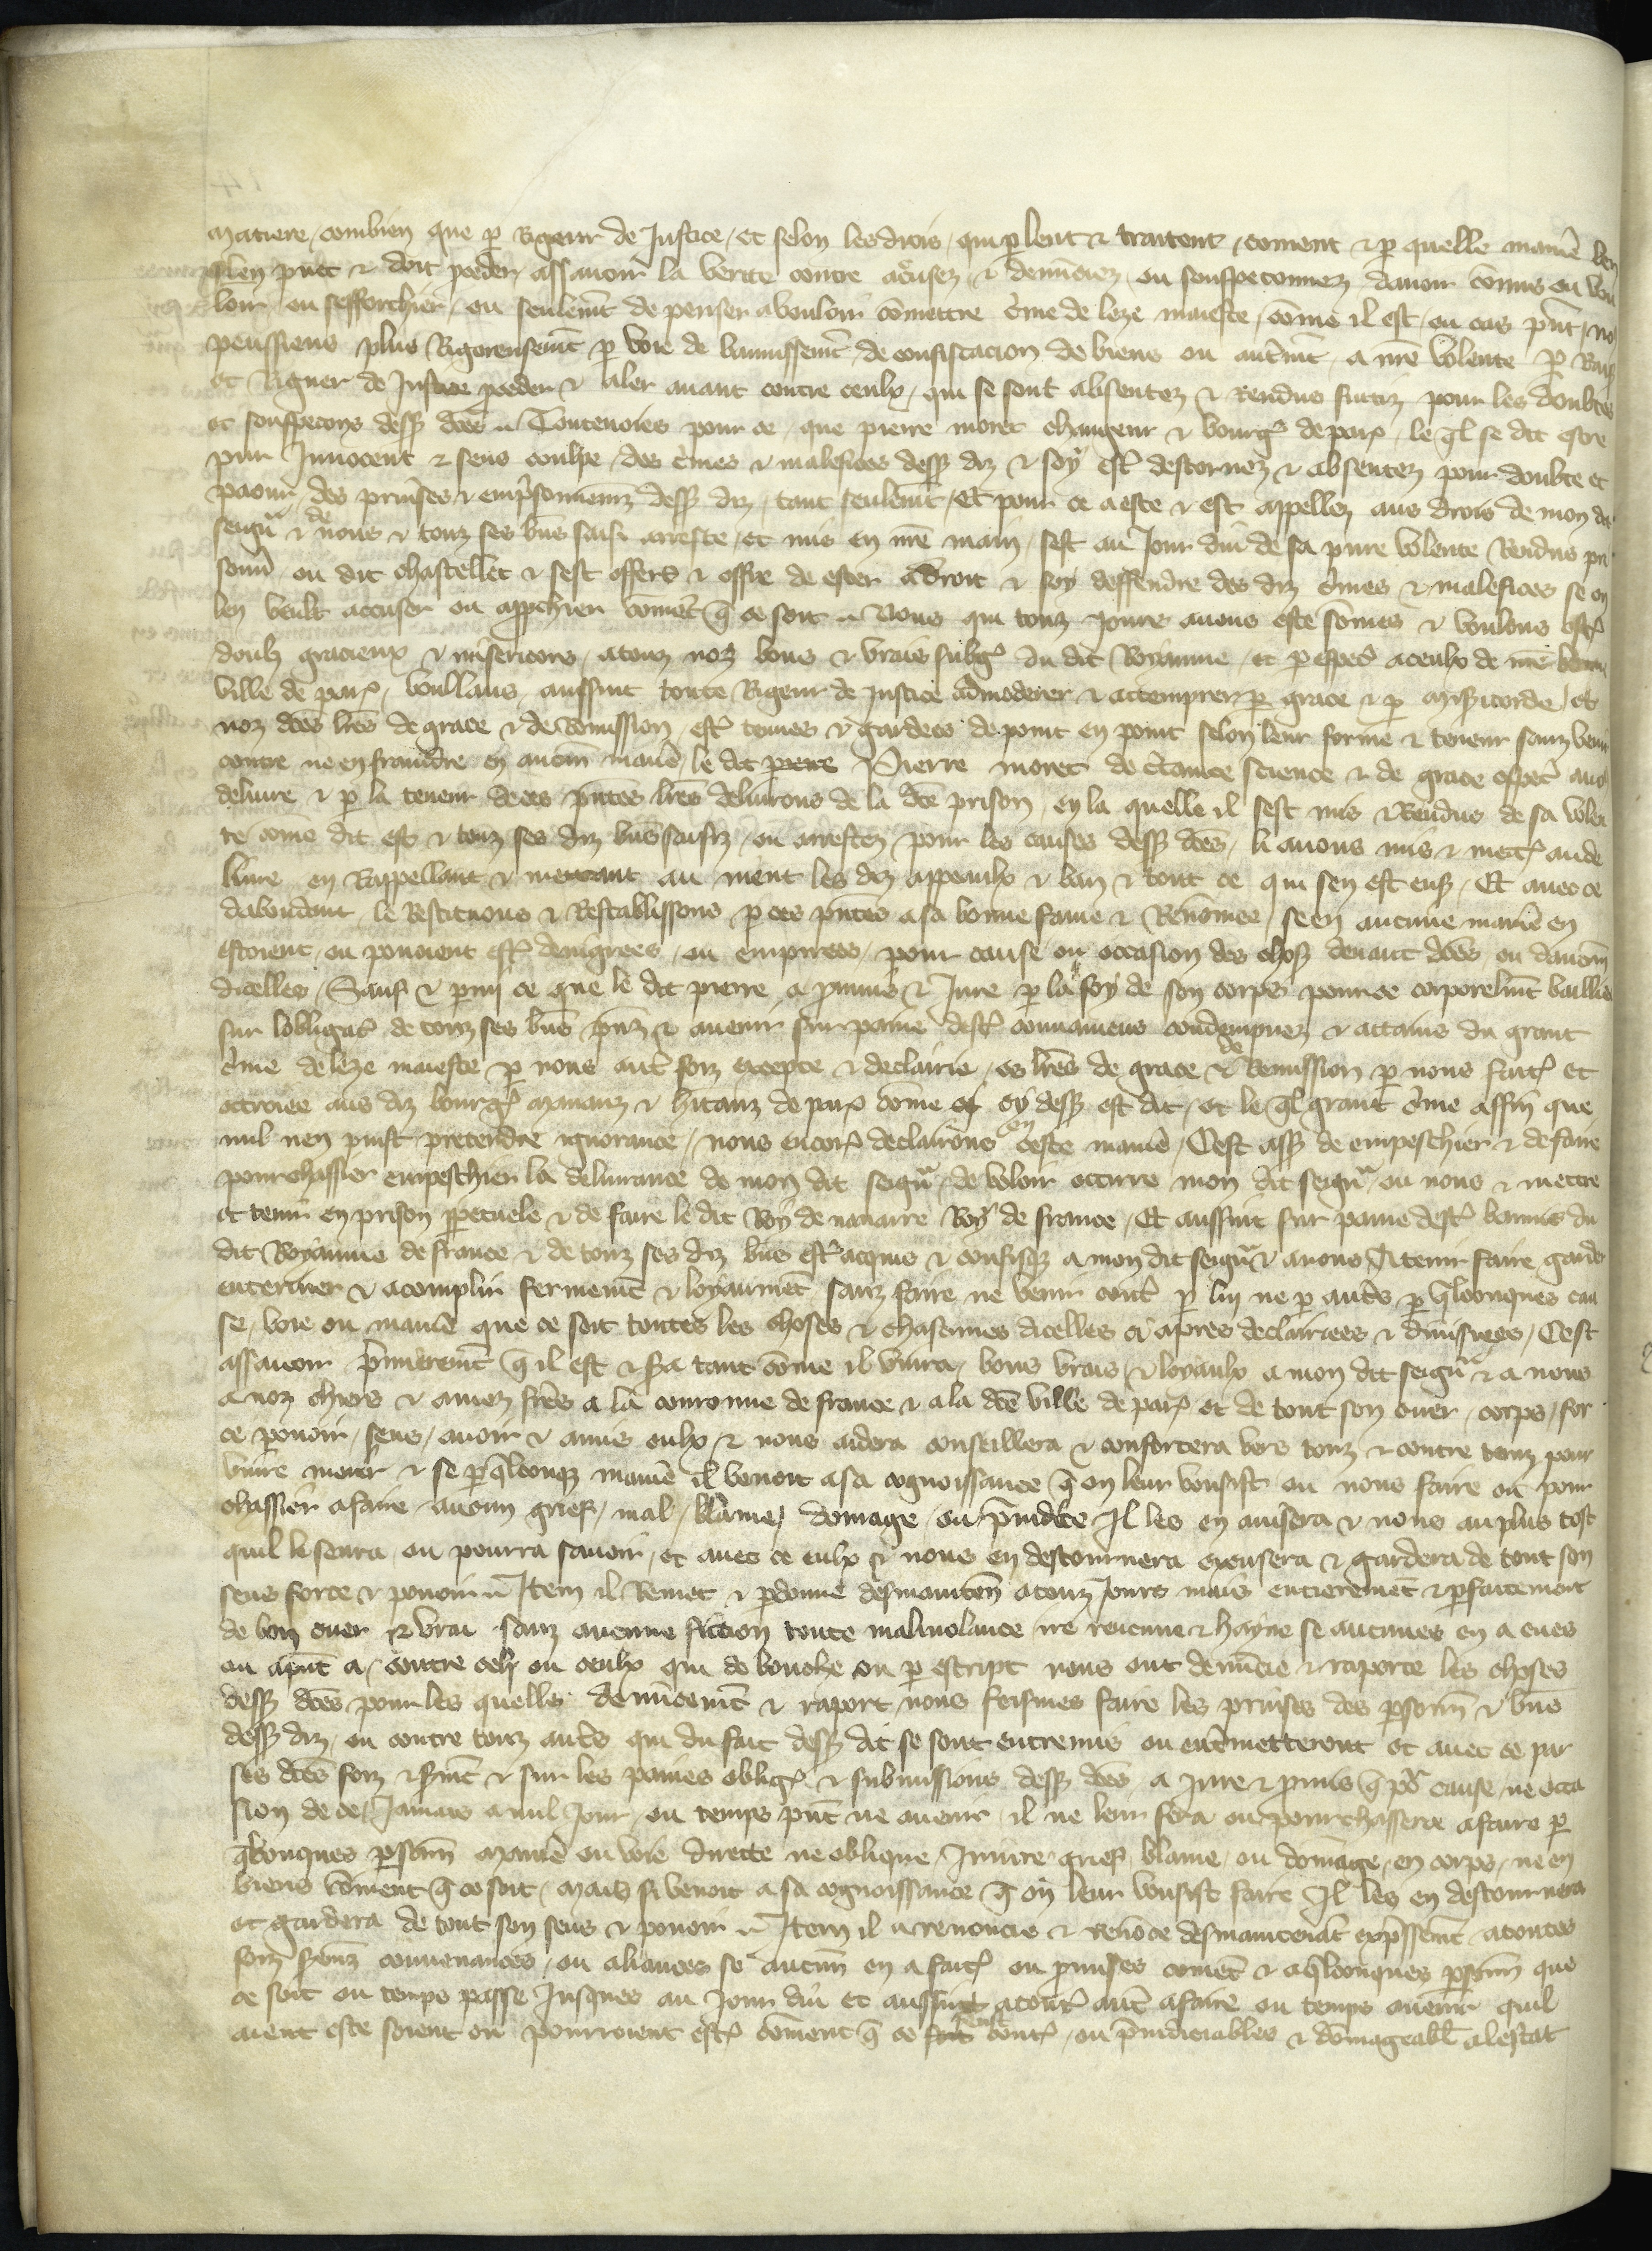 matiere, combien que ꝑ Rigeur de Justice, et selon les drois, qui ꝑlent & traitent, coment & ꝑ quelle maniē len
puet & doit ꝓceder assauoir la verite contre acusez & denūciez ou souspeconnez dauoir cōmis ou vou
loir ou sefforchier, ou seulemt̄ de penser a vouloir cōmettre c̄me de leze maieste, cōme il est, ou cas pn̄t, no
peussiens plus Rigoreusemt̄ ꝑ voie de bannissemt̄ de confiscacion de biens ou autremt̄ a nr̄e volente ꝑ Rais
et Rigueur de Justice ꝓceder & aler auant contre ceulx, qui se sont absentez & Renduz fuitiz pour les doubtes
et souspecons dessꝰ dc̄es. Toutevoies pour ce, que pierre moret changeur & bourgꝭ de parꝭ, le ql̄ se dit estre
pur Innocent & sens coulpe des c̄mes & malefices dessꝰ diz & soy estꝰ destornez & absentez pour doubte et
paour des prinses & emprisonnemēz dessꝰ diz, tant seulemt̄, Et pour ce a este & est appellez aus drois de mon dit
seigr̄ & de nous & touz ses bn̄s saisi arreste, et mis en nr̄e main, sest au Jour dui de sa pure volente Rendus pri
sonnᵉ ou dit chastellet & sest offers & offre de ester a droit & soy deffendre des diz c̄mes & malefices se on
len veult accuser ou approchier cōmēt q̄ ce soit. Nous qui touz jours auons este sōmes & voulons estꝰ
doulx gracieux & misericors, a touz noz bons & vrais subgꝭ du dit Royaume, et ꝑ especᵃl a ceulx de nr̄e bonne
ville de parꝭ, voullans aussint toute Rigeur de justice amoderer & attemprer ꝑ grace & ꝑ misᵉicorde, et
noz dc̄es lr̄es de grace & de Remission, estꝰ tenues & gardees de point en point selon leur forme & teneur sanz venir
contre ne enfraindre en aucūn maniē, le dit Pierre moret de cᵉtaine science & de grace espec̄ auons
deliure & ꝑ la teneur de ces pn̄tes lr̄es deliurons de la dc̄e prison, en la quelle il sest mis & Rendus de sa volen
te cōme dit est & touz ses diz bn̄s saisiz, ou arrestez pour les causes dessꝰ dc̄es, li auons mis & mettꝰ au de
liure en Rappellant & mettant au nient les diz appeaulx & ban & tout ce qui sen est ensꝰ, Et auec ce
dabondant, le Restituons & Restablissons ꝑ ces pn̄tes a sa bonne fame & Renōmee, se en aucune maniē en
estoient, ou pouoient estꝰ denigrees, ou empirees, pour cause ou occasion des chosꝭ deuant dc̄es ou daucune
dicelles, Sauf & ꝑmi ce que le dit pierre a ꝓmis & Jure ꝑ la foy de son corps pour ce corporelmt̄ baillie
sur lobligac̄ de touz ses bn̄s pn̄z & auenir, sur paine destꝰ conuaincus condempnez & attains du grant
c̄me de leze maieste ꝑ nous autᵉ foiz excepte & declairie, es lr̄es de grace & de Remission ꝑ nous faitꝭ et
ottroiees aus diz bourgꝭ mananz & hitanz de parꝭ cōme cy dessꝰ est dit, et le ql̄ grant c̄me affin que
nul nen puist pretendre ignorance, nous encorꝰ declairons en ceste maniē, Cest assꝰ de empeschier & de faire
pourchassier empeschier la deliurance de mon dit seigr̄, de voloir occirre mon dit seigr̄, ou nous & mettre
et tenir en prison ꝑpetuele & de faire le dit Roy de nauarre Roy de france, Et aussint sur paine destꝰ bannis du
dit Royaume de france & de touz ses diz bn̄s estꝰ acquis & confisqꝫ a mon dit seigr̄ & a nous, A tenir faire garder
enteriner & acomplir fermemt̄ & loyaumēt, sanz faire ne venir contᵉ ꝑ luy ne ꝑ autᵉs ꝑ ql̄conques cau
se, voie ou maniē que ce soit toutes les choses & chascunes dicelles ci apres declairiees & diuisees, Cest
assauoir pᵉmieremt̄ q̄ il est & sᵉa tant cōme il viura, bons vrais & loyaulx a mon dit seigr̄ & a nous
a noz chiers & amez frēs a la couronne de france & a la dc̄e ville de parꝭ et de tout son cuer, corps, for
ce pouoir, sens, auoir & amis eulx & nous aidera conseillera & confortera vers touz & contre touz pour
viure mourir & se ꝑ ql̄conqꝫ maniē il venoit a sa cognoissance q̄ on leur vousist ou nous faire ou pour
chassier a faire aucun grief, mal, blame, domage, ou pᵉiudice Il les en auisera & nous au plus tost
quil le saura ou pourra sauoir, et auec ce eulx & nous en destournera excusera & gardera de tout son
sens force & pouoir. Item il Remet & ꝑdonne desmaintēn a touz Jours mais entieremēt & ꝑfaitement
de bon cuer & vrai sanz aucune fiction toute maliuolance ire rencune & hayne se aucunes en a eues
ou apn̄t a, contre cely ou ceulx qui de bouche ou ꝑ escript nous ont denūcie & raporte les choses
dessꝰ dc̄es pour les quelles denūcemt̄ & raport nous feismes faire les prinses des ꝑsonn̄ & bn̄s
dessꝰ diz, ou contre touz autᵉs qui du fait dessꝰ dit se sont entremis ou entᵉmetteront et auec ce par
ses dc̄es foiz & sermt̄ & sur les paines obligꝭ & submissions dessꝰ dc̄es, a jure & ꝓmis q̄ pour cause, ne occa
sion de ce, Jamais a nul Jour, ou temps pn̄t ne auenir, il ne leur fera ou pourchassera a faire ꝑ
ql̄conques ꝑsonn̄ maniē ou voie directe ne oblique, Iniure grief, blame, ou domage, en corps, ne en
biens cōment q̄ ce soit, mais si venoit a sa cognoissance q̄ on leur vousist faire Il les en destournera
et gardera de tout son sens & pouoir. Item il a renoncie & renōce desmaintenāt expᵉssemt̄ a toutes
foiz sermz̄ conuenances, ou aliances se aucūn en a faitꝭ ou ꝓmises comēt & a ql̄conques ꝑsonn̄ que
ce soit ou temps passe Jusques au Jour dui et aussint a toutꝰ autᵉ a faire ou temps auenir quil
aient este soient ou pourroient estꝰ cōment q̄ ce feust contꝰ, ou pᵉiudiciables & dōmageabl̄ a lestat